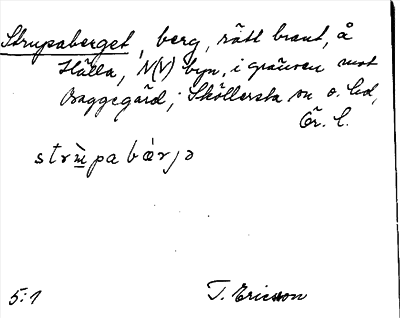 Strupaberget, berg, rätt brant, å
Hälla, N(V) byn, i gränsen mot
Baggegård; Sköllersta sn o. hd,
Ör. l.
strùpabærjə
5:1 T. Ericsson